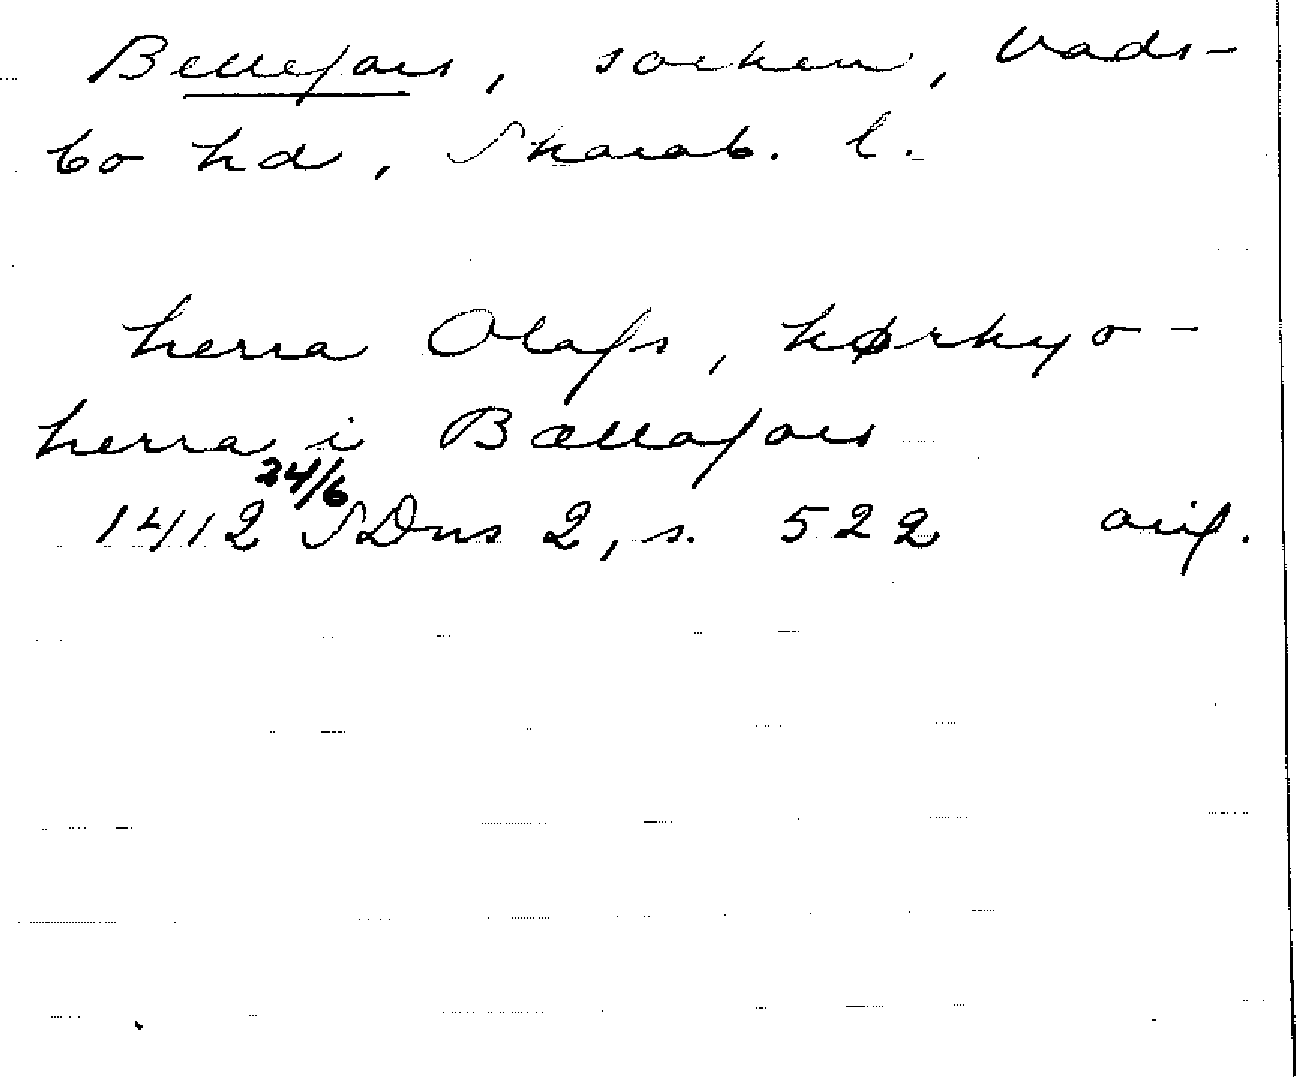 Bellefors, socken, Vads-
bo hd, Skarab. l.
herra Olafs, kørkyo-
herra i Bællafors
1412 24/6 SDns 2, s. 522 orig.